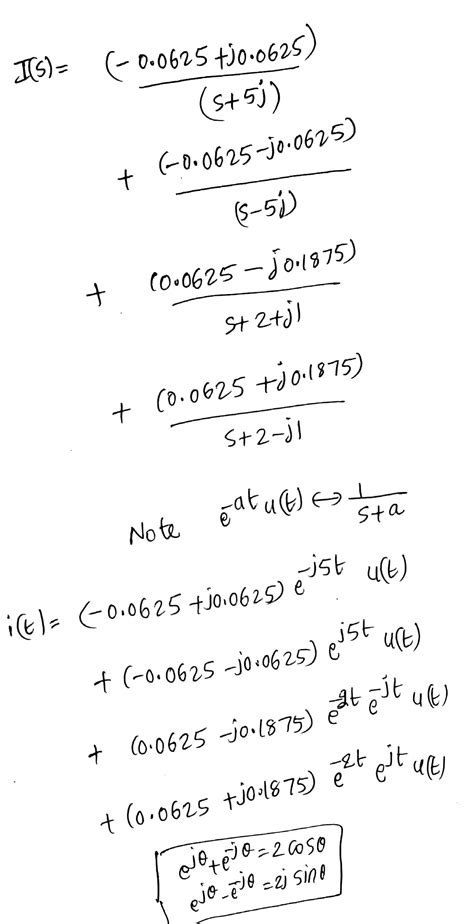 I(s) = (-0.0625 + j0.0625) / (s+5j)
+ (-0.0625 - j0.0625) / (s-5j)
+ (0.0625 - j0.1875) / s+2+j1
+ (0.0625 + j0.1875) / s+2-j1
Note e^-at u(t) ↔ 1/s+a
i(t) = (-0.0625 + j0.0625) e^-j5t u(t)
+ (-0.0625 - j0.0625) e^j5t u(t)
+ (0.0625 - j0.1875) e^-2t e^-jt u(t)
+ (0.0625 + j0.1875) e^-2t e^jt u(t)
e^jθ + e^-jθ = 2 cosθ
e^jθ - e^-jθ = 2j sinθ